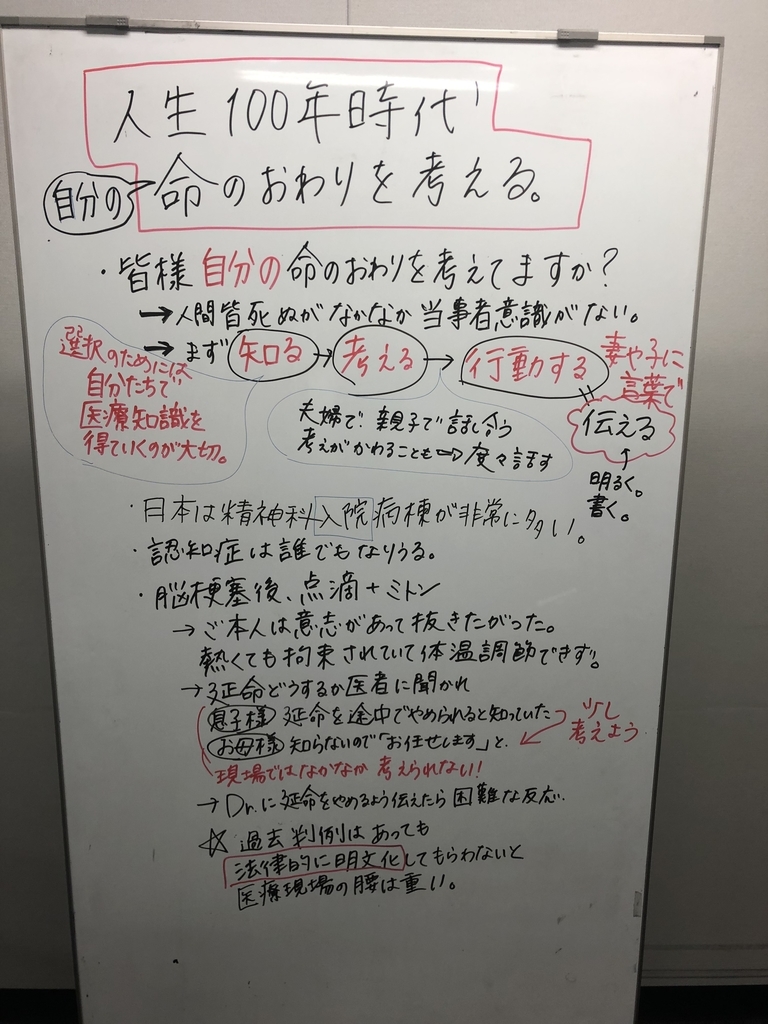 人生100年時代
自分の 命のおわりを考える。
・皆様 自分の 命のおわりを考えてますか?
→人間皆死ぬがなかなか 当事者意識がない。
→ まず 知る → 考える → 行動する
選択のためには
自分たちで
医療知識を
得ていくのが大切。
妻や子に
言葉で
伝える
↑
明るく。
書く。
夫婦で 親子で 話し合う
考えがかわることも⇒度々話す
・日本は精神科入院病棟が非常に多い。
・認知症は誰でもなりうる。
・脳梗塞後、点滴+ミトン
→ ご本人は意志があって抜きたがった。
熱くても拘束されていて体温調節できず。
→延命どうするか医者に聞かれ
息子様 延命を途中でやめられると知っていた
お母様 知らないので「お任せします」と、
少し
考えよう
現場ではなかなか考えられない!
→ Dr.に延命をやめるよう伝えたら 困難な反応.
☆ 過去判例はあっても
法律的に明文化してもらわないと
医療現場の腰は重い。